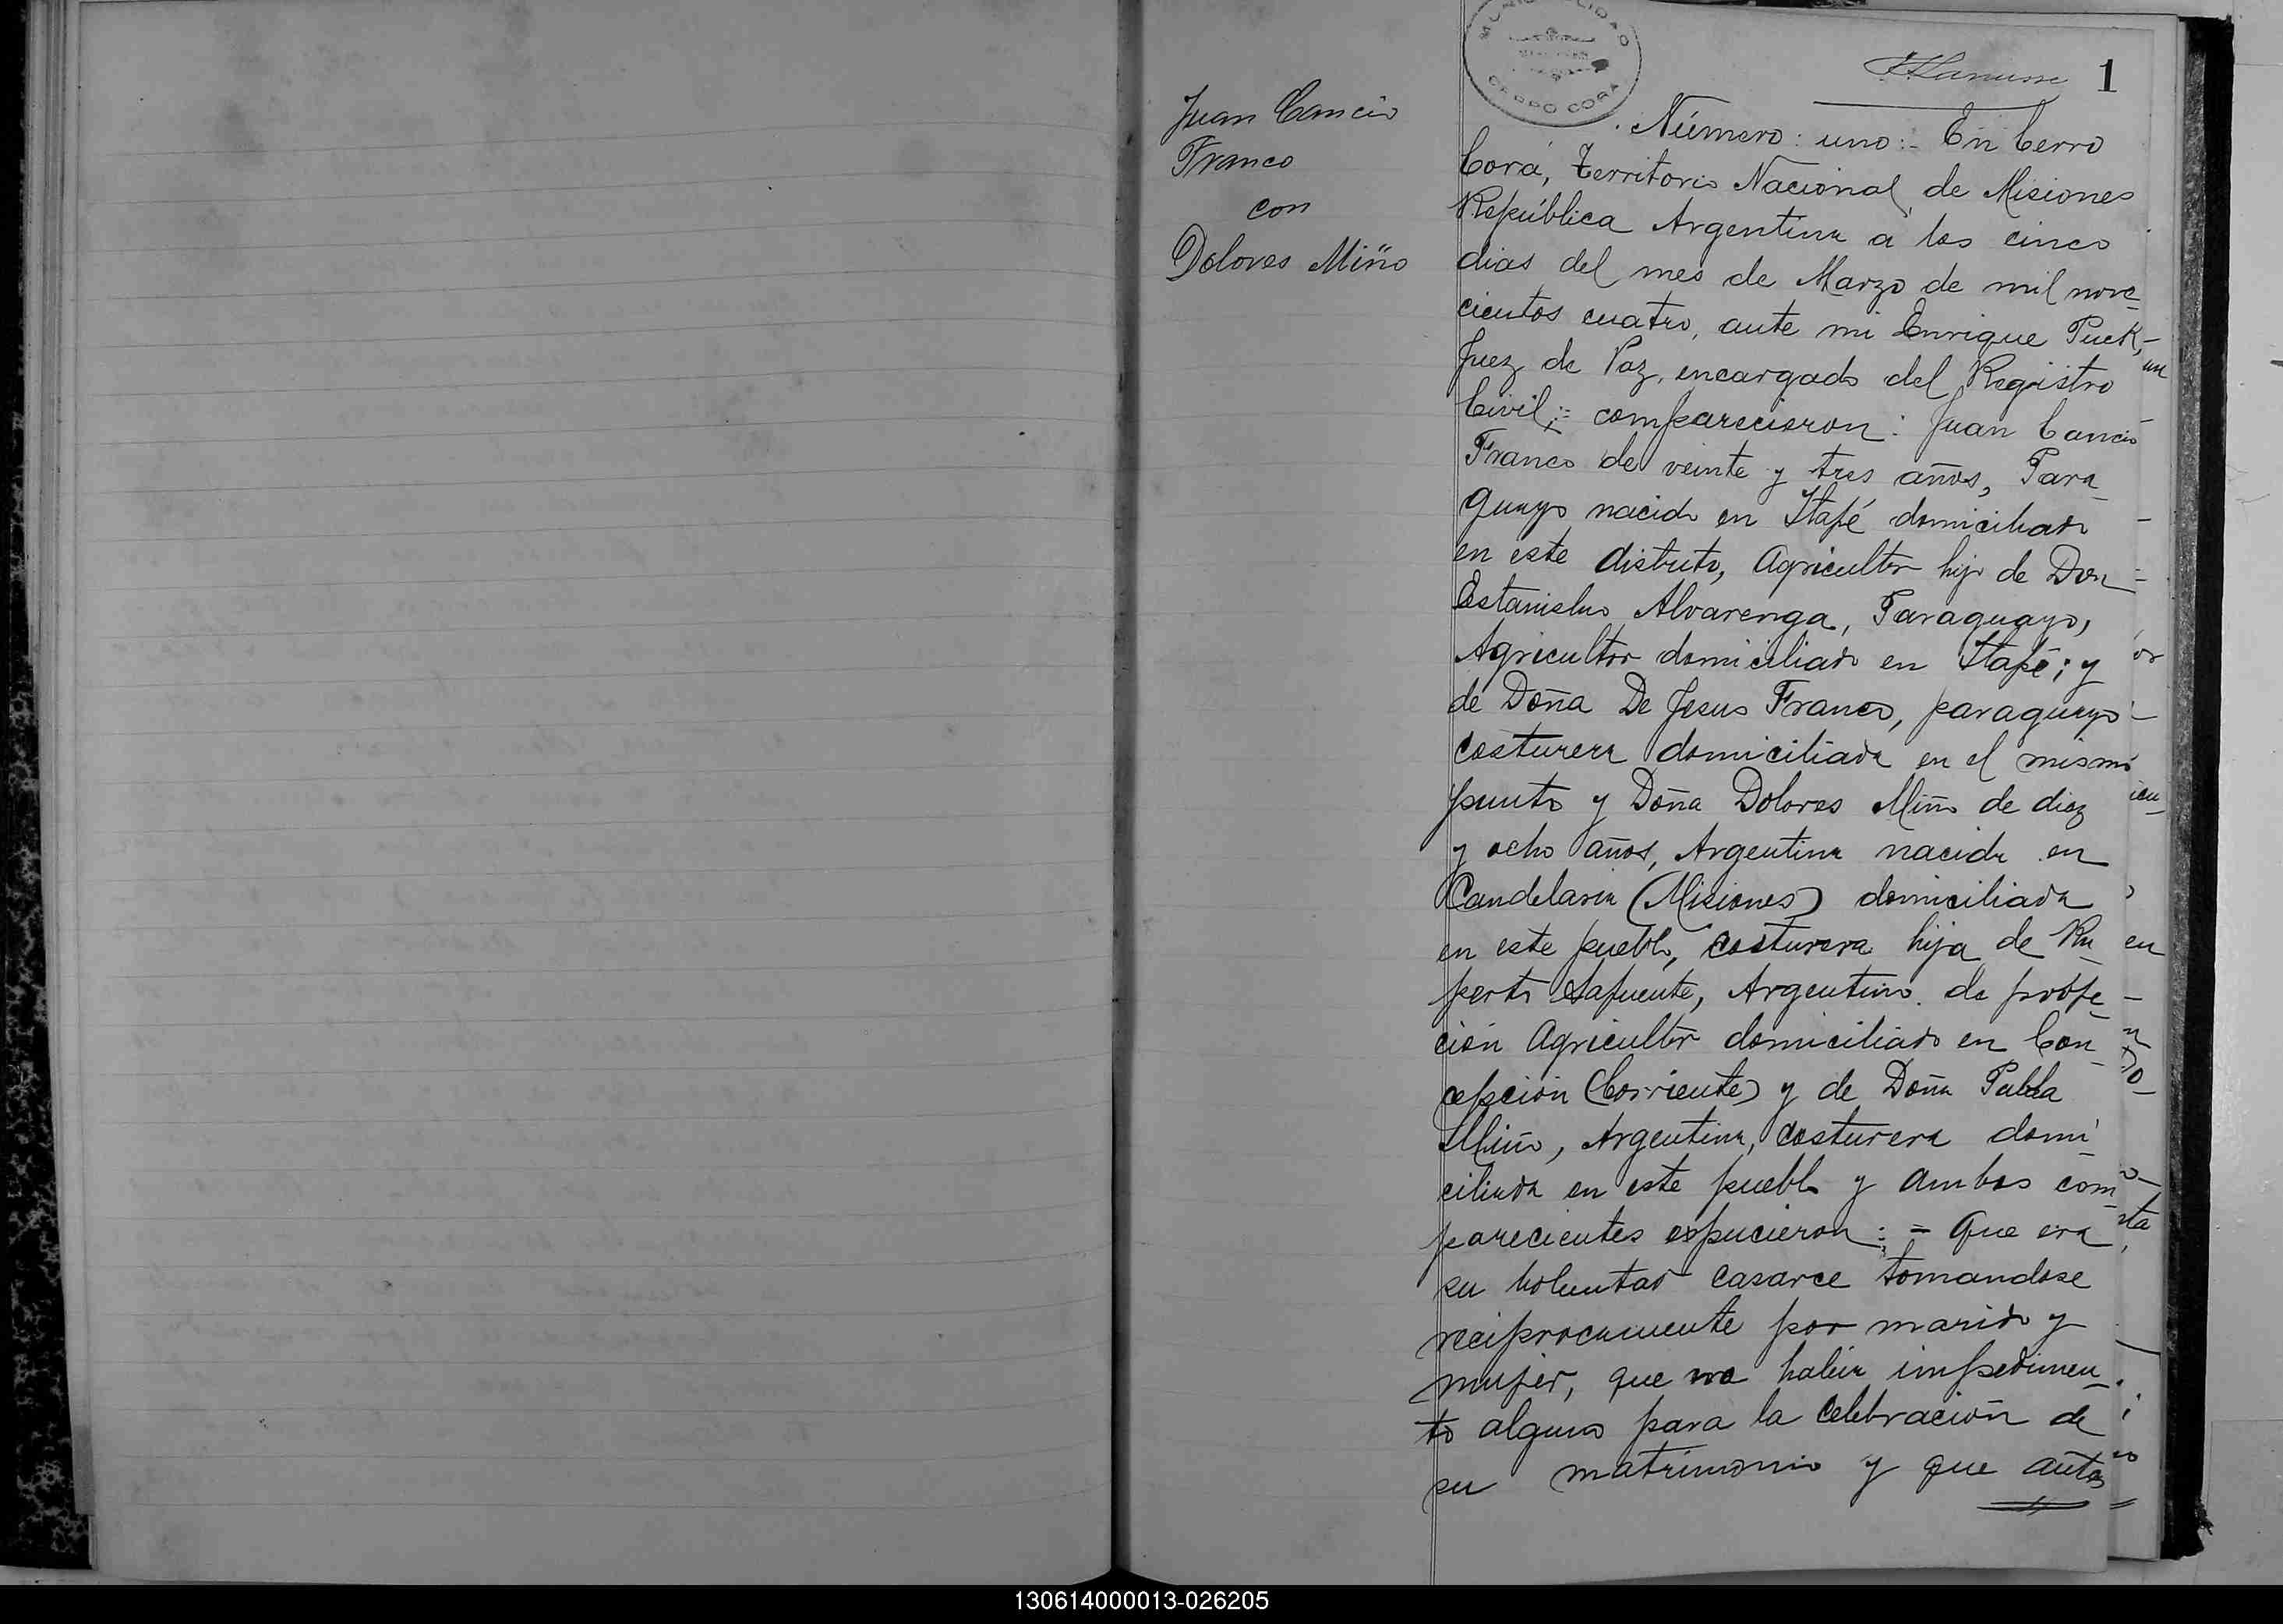 MUNICIPALIDAD
CERRO CORA
1
Juan Cancio
Franco
con
Dolores Miño
Número: uno:- En Cerro
Corá, Territorio Nacional de Misiones
República Argentina á los cinco
dias del mes de Marzo de mil nove-
cientos cuatro, ante mi Enrique Puck,
Juez de Paz, encargado del Registro
Civil;= comparecieron: Juan Cancio
Franco de veinte y tres años, Para-
guayo nacido en Itapé domiciliado
en este distrito, Agricultor hijo de Don
Estanislao Alvarenga, Paraguayo,
Agricultor domiciliado en Itapé; y
de Doña De Jesus Franco, paraguayo
costurera domiciliada en el mismo
punto y Doña Dolores Miño de diez
y ocho años, Argentina nacida en
Candelaria (Misiones) domiciliada
en este pueblo, costurera hija de Ru-
perto Lafuente, Argentino de profe-
ción Agricultor domiciliado en Con-
cepción (Corriente) y de Doña Pabla
Miño, Argentina, costurera domi-
ciliada en este pueblo y ambos com-
parecientes espucieron:= Que era
su voluntad casarce tomandose
reciprocamente por marido y
mujer, que no habia impedimen-
to alguno para la celebración de
su matrimonio y que antes
130614000013-026205